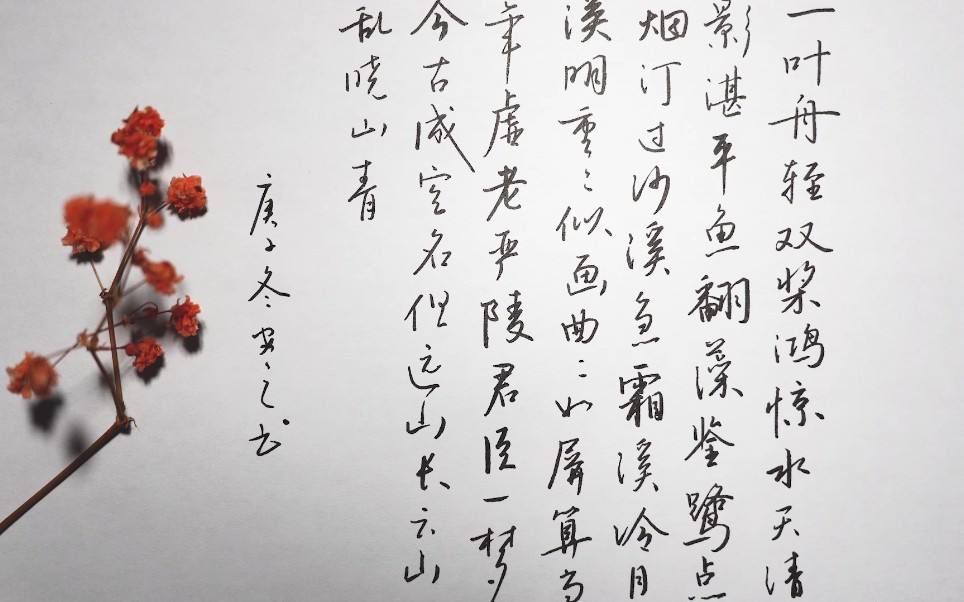 一叶舟轻双桨鸿惊水天清
影湛平鱼翻藻鉴鹭点
烟汀过沙溪急霜溪冷月
溪明重〻似画曲〻如屏算当
年虚老严陵君臣一梦
今古成空名但远山长云山
乱晓山青
庚子冬之书